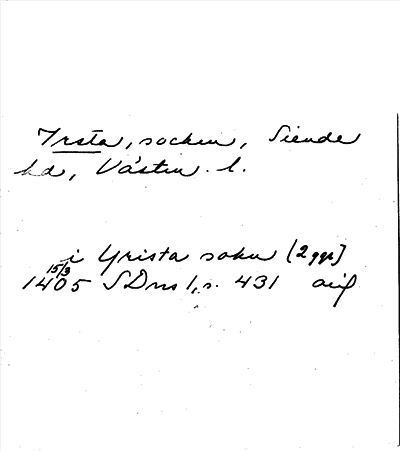 Irsta, socken, Siende
hd, Västm. l.
i Yrista sokn [2 ggr]
15/3
1405 SDns 1, s. 431 avs